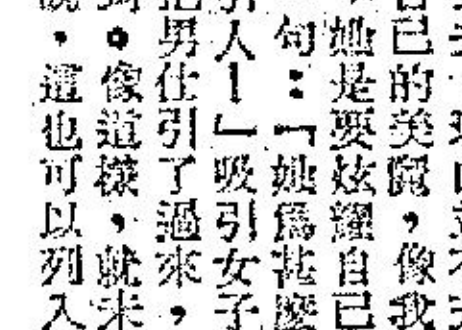 己的美麗,像我
她是要炫耀自己
句:「她爲甚麼
引人!」吸引女子
男仕引了過來,
。像這樣,就未
,這也可以列入